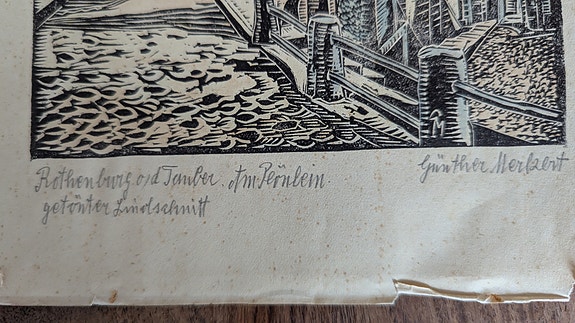 Rothenburg o/d Tauber. Am Plönlein.
Günther Merkert
getönter Linolschnitt
M